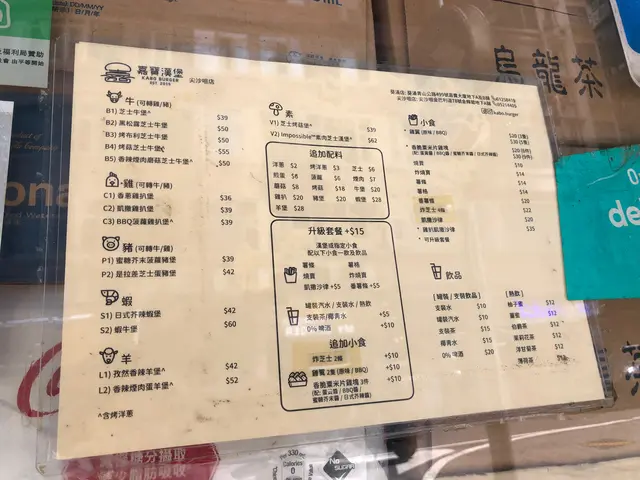 嘉寶漢堡
KABO BURGER
EST. 2020
尖沙咀店
@kabo.burger
牛 (可轉雞/豬)
B1) 芝士牛堡^ $39
B2) 黑松露芝士牛堡 $50
B3) 烤布利芝士牛堡 $50
B4) 烤菇芝士牛堡^ $55
B5) 香辣煙肉蘑菇芝士牛堡^ $50
雞 (可轉牛/豬)
C1) 香蔥雞扒堡 $36
C2) 凱撒雞扒堡 $39
C3) BBQ菠蘿雞扒堡^ $39
豬 (可轉牛/雞)
P1) 蜜糖芥末菠蘿豬堡 $39
P2) 是拉差芝士蛋豬堡 $42
蝦
S1) 日式芥辣蝦堡 $42
S2) 蝦牛堡 $60
羊
L1) 孜然香辣羊堡^ $42
L2) 香辣煙肉蛋羊堡^ $52
^含烤洋蔥
素
V1) 芝士烤菇堡^ $39
V2) Impossible™素肉芝士漢堡^ $62
追加配料
洋蔥 $2 烤洋蔥 $3 芝士 $6
煎蛋 $8 菠蘿 $6 煙肉 $7
蘑菇 $8 烤菇 $18 牛堡 $20
雞扒 $20 豬堡 $20 蝦堡 $28
羊堡 $28
升級套餐 +$15
漢堡或指定小食
配以下小食一款及飲品
薯條 薯格
燒賣 炸燒賣
凱撒沙律 +$5 番薯條 +$5
罐裝汽水 / 支裝水 / 熱飲
支裝茶/椰青水 +$5
0% 啤酒 +$10
追加小食
炸芝士 2條 +$10
雞翼 2隻 (原味 / BBQ) +$10
香脆粟米片雞塊 3件 +$10
小食
雞翼 (原味 / BBQ) $20 (3隻)
香脆粟米片雞塊
燒賣 $10
炸燒賣 $14
薯條 $14
薯格
番薯條 $20
炸芝士 4條 $22
凱撒沙律 $20
雞扒凱撒沙律 $35
可升級套餐
飲品
[罐裝 / 支裝飲品] [熱飲]
支裝水 $10
罐裝汽水 $10
支裝茶 $15
椰青水 $15
0% 啤酒 $20
柚子蜜 $12
伯爵茶 $12
茉莉花茶 $12
洋甘菊茶 $12
薄荷茶 $12
烏龍茶
No
SUGAR